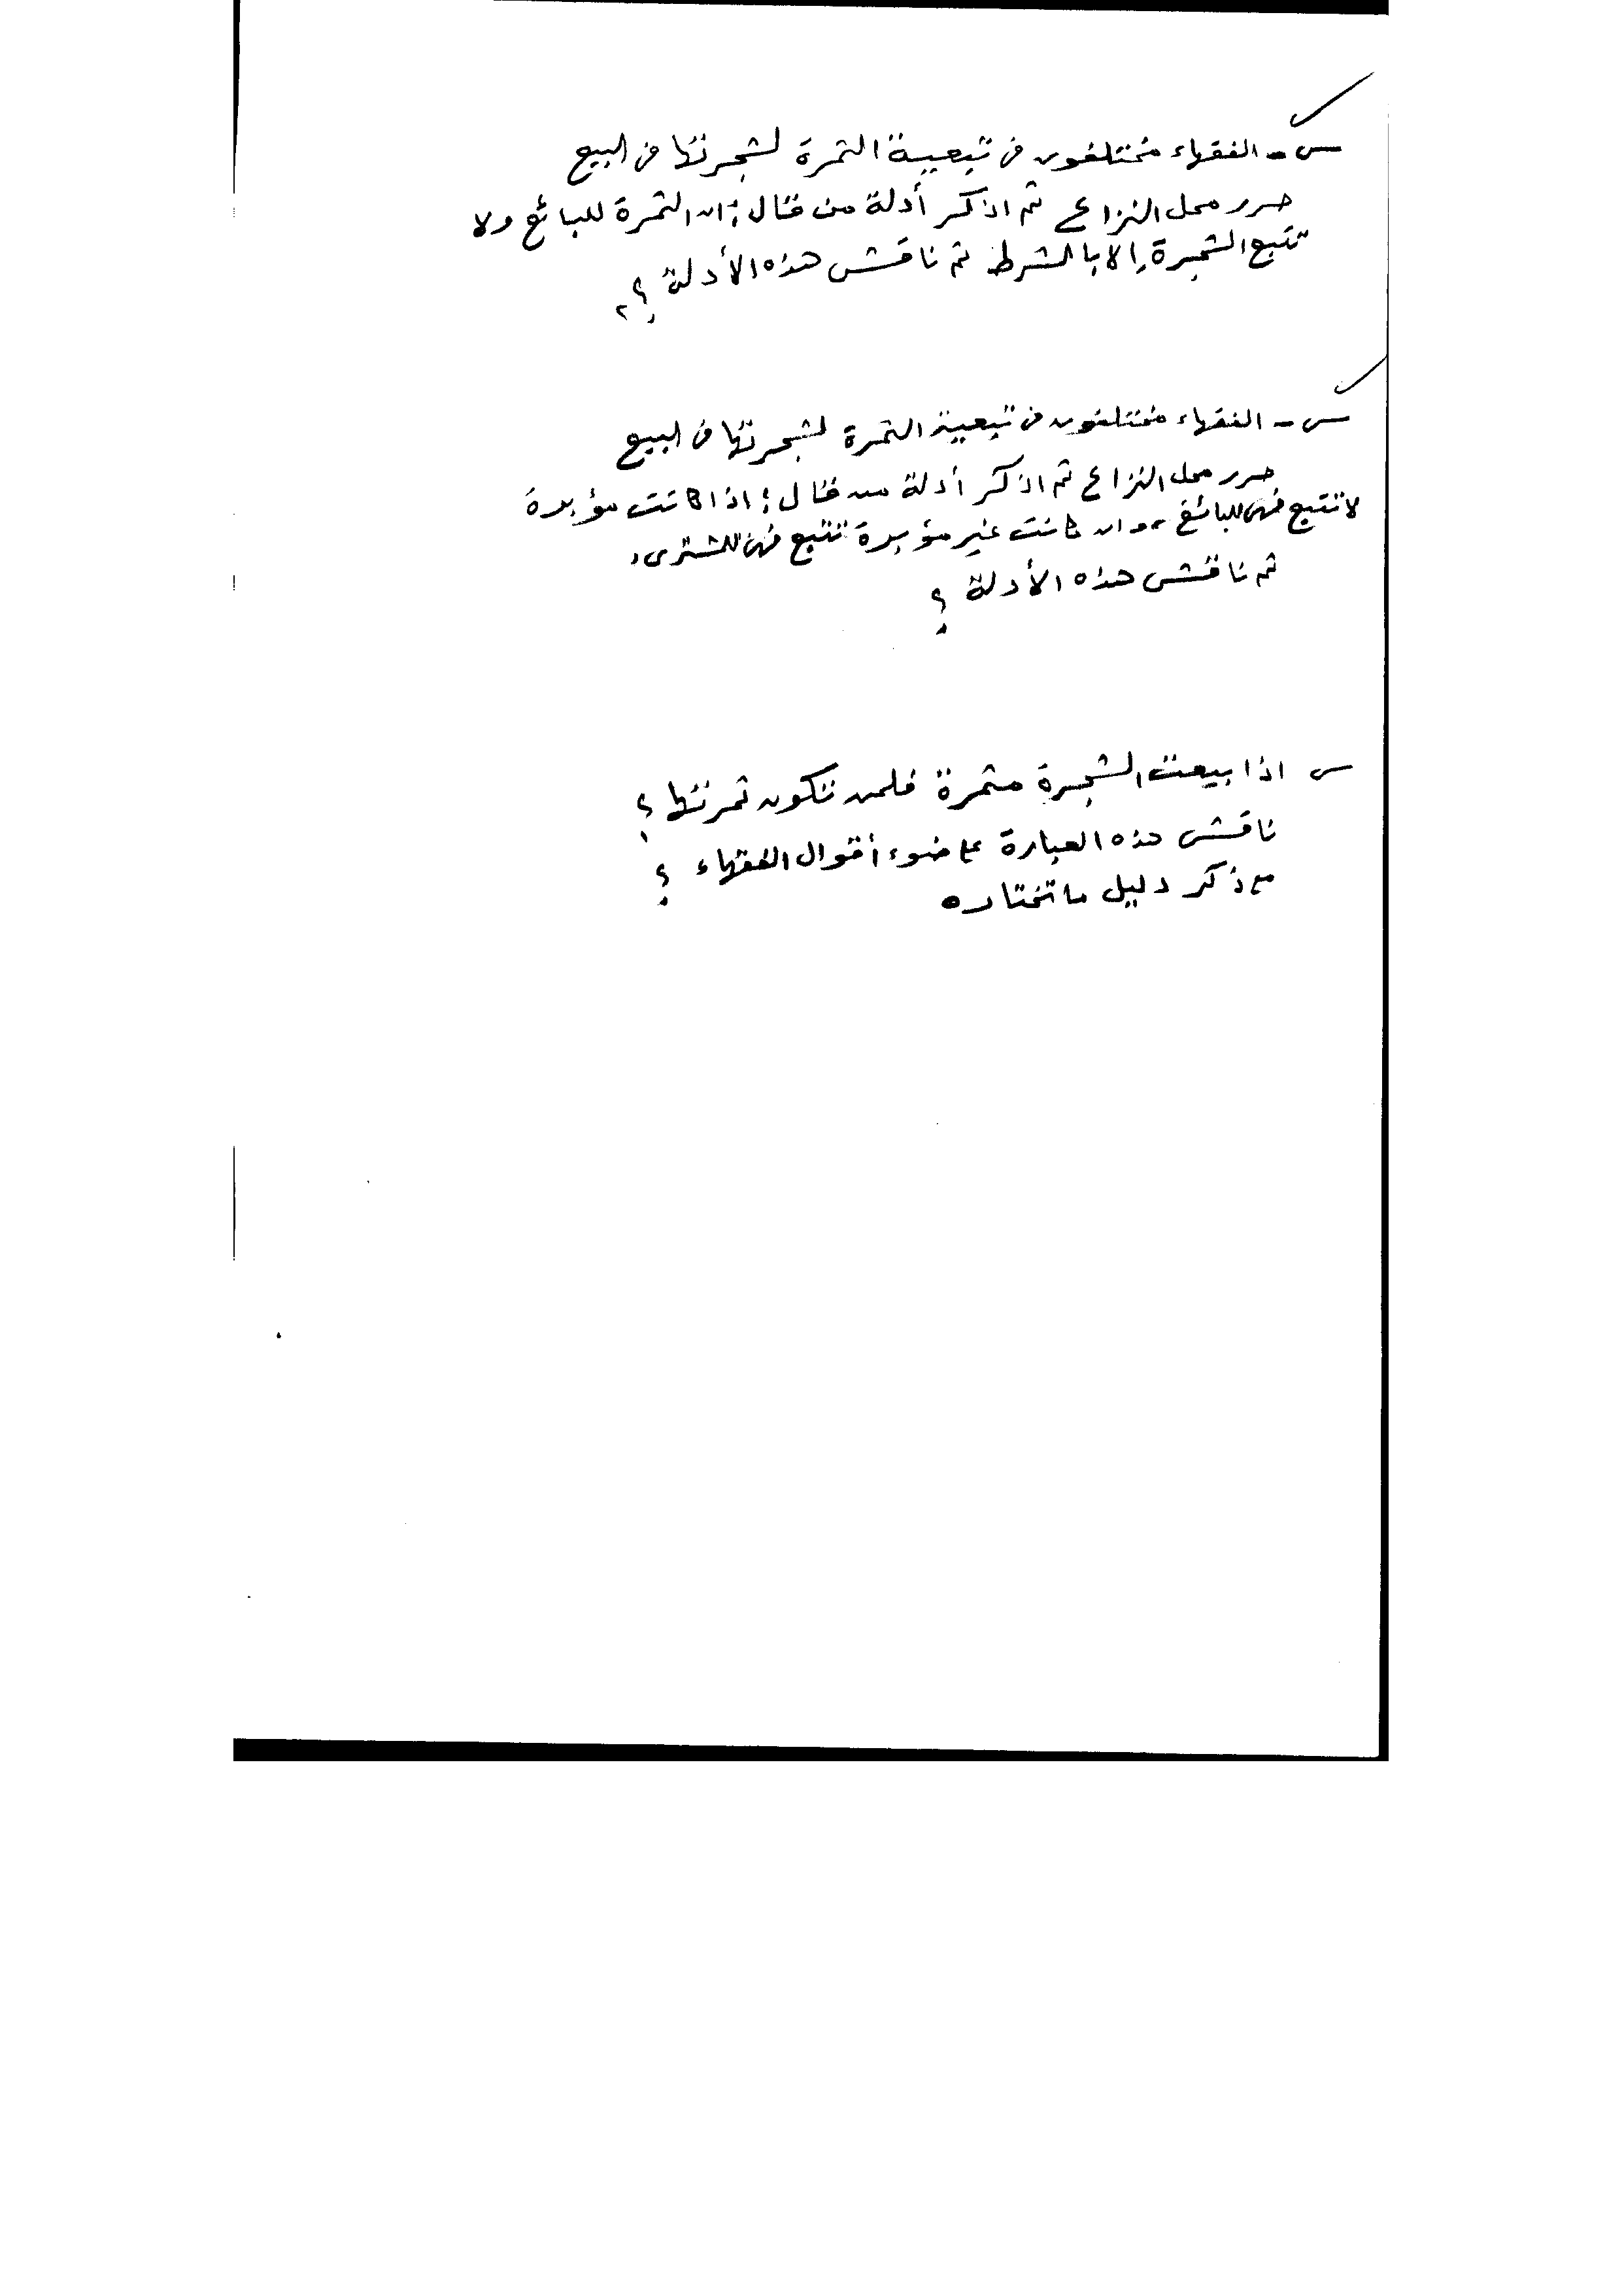 س - الفقهاء مختلفون في تبعية الثمرة لشجرتها في البيع
حرر محل النزاع ثم اذكر أدلة من قال : ان الثمرة للبائع ولا
تتبع الشجرة إلا بالشرط ثم ناقش هذه الأدلة ؟
س - الفقهاء مختلفون في تبعية الثمرة لشجرتها في البيع
حرر محل النزاع ثم اذكر أدلة من قال : اذا كانت مؤبرة
لا تتبع فهى للبائع وان كانت غير مؤبرة تتبع فهى للمشترى
ثم ناقش هذه الأدلة ؟
س اذا بيعت الشجرة مثمرة فلمن تكون ثمرتها ؟
ناقش هذه العبارة على ضوء أقوال الفقهاء ؟
مع ذكر دليل ما تختاره